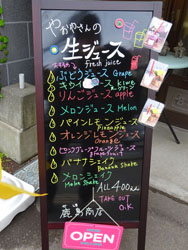 やおやさんの
生ジュース
fresh juice
ぶどうジュース Grape
キウイジュース kiwi
りんごジュース apple
メロンジュース Melon
パインレモンジュース
Pineapple
オレンジレモンジュース
Orange
ピンクグレープフルーツジュース
grapefruit
バナナシェイク
Banana Shake
メロンシェイク
Melon Shake
ALL 400
TAKE OUT
O.K
鹿島商店
OPEN